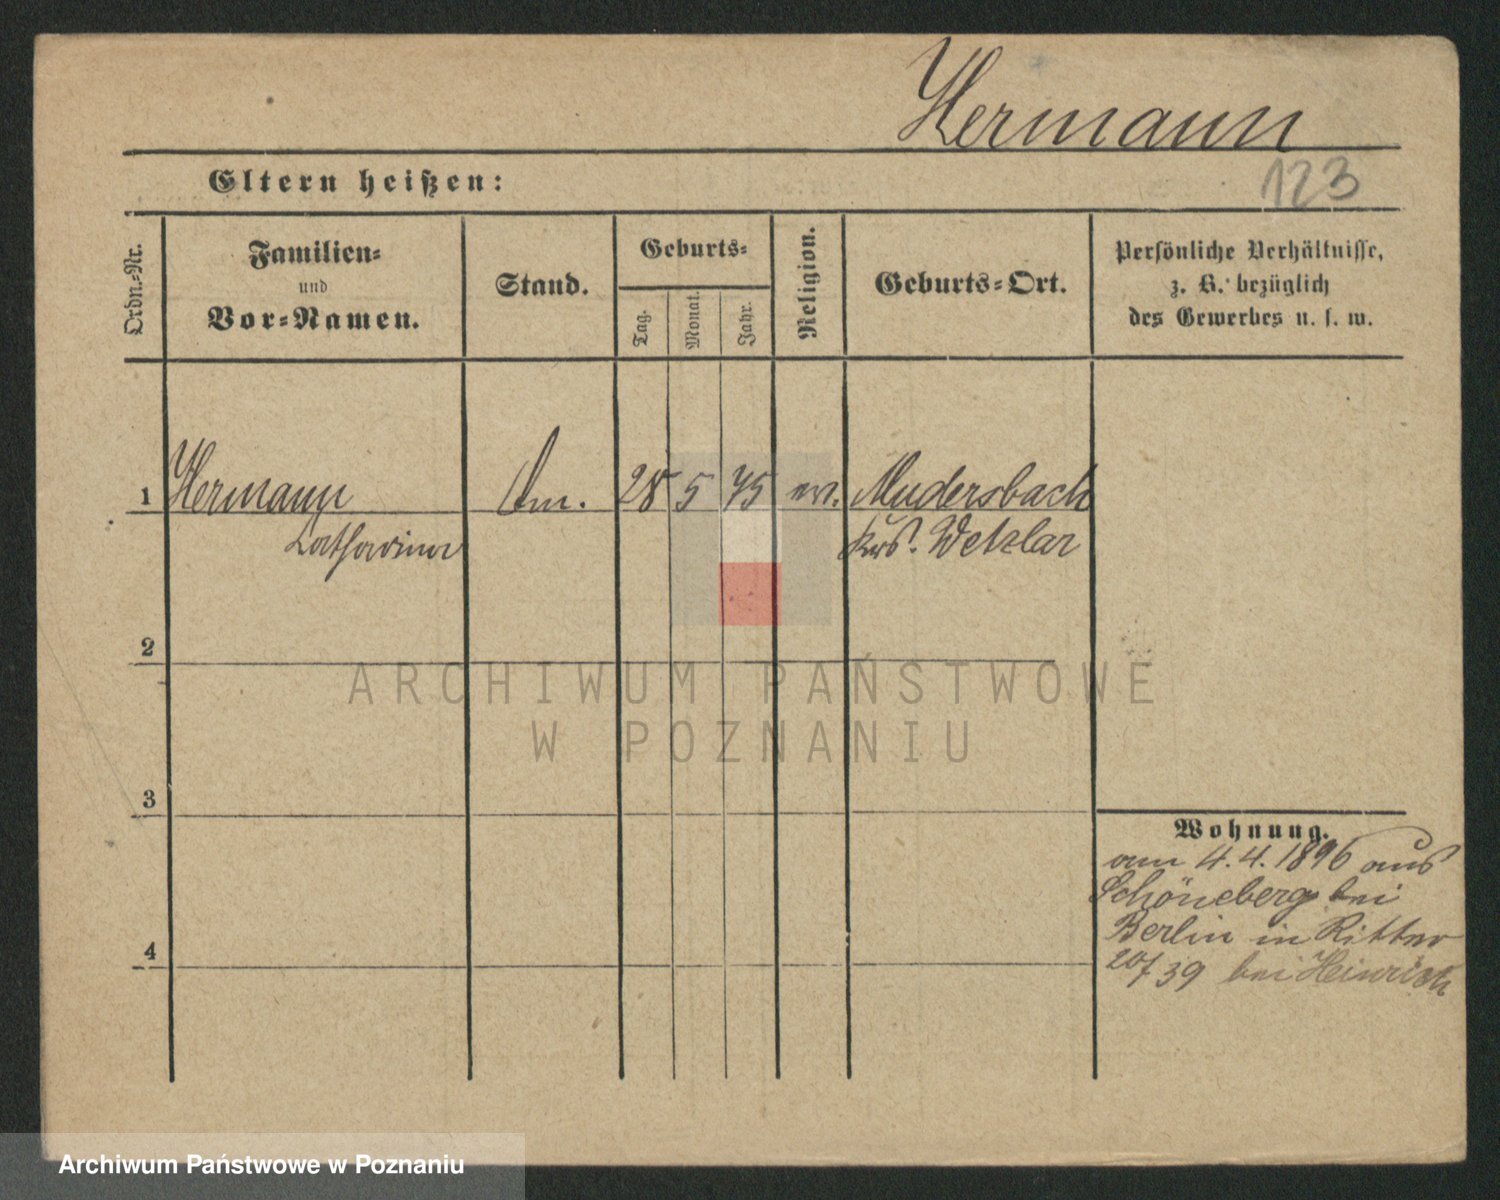 Hermann
123
Eltern heißen:
Ordn.-Nr.
Familien-
und
Vor-Namen.
Stand.
Geburts-
Tag.
Monat.
Jahr.
Religion.
Geburts-Ort.
Persönliche Verhältnisse,
z. B. bezüglich
des Gewerbes u. s. w.
1 Hermann 28 5 75 ev. Mudersbach
Catharina Krs. Wetzlar
2
ARCHIWUM PAŃSTWOWE
W POZNANIU
3
Wohnung.
am 4.4.1896 aus
Schöneberg bei
Berlin in Ritter
39 bei Heinrich
4
Archiwum Państwowe w Poznaniu